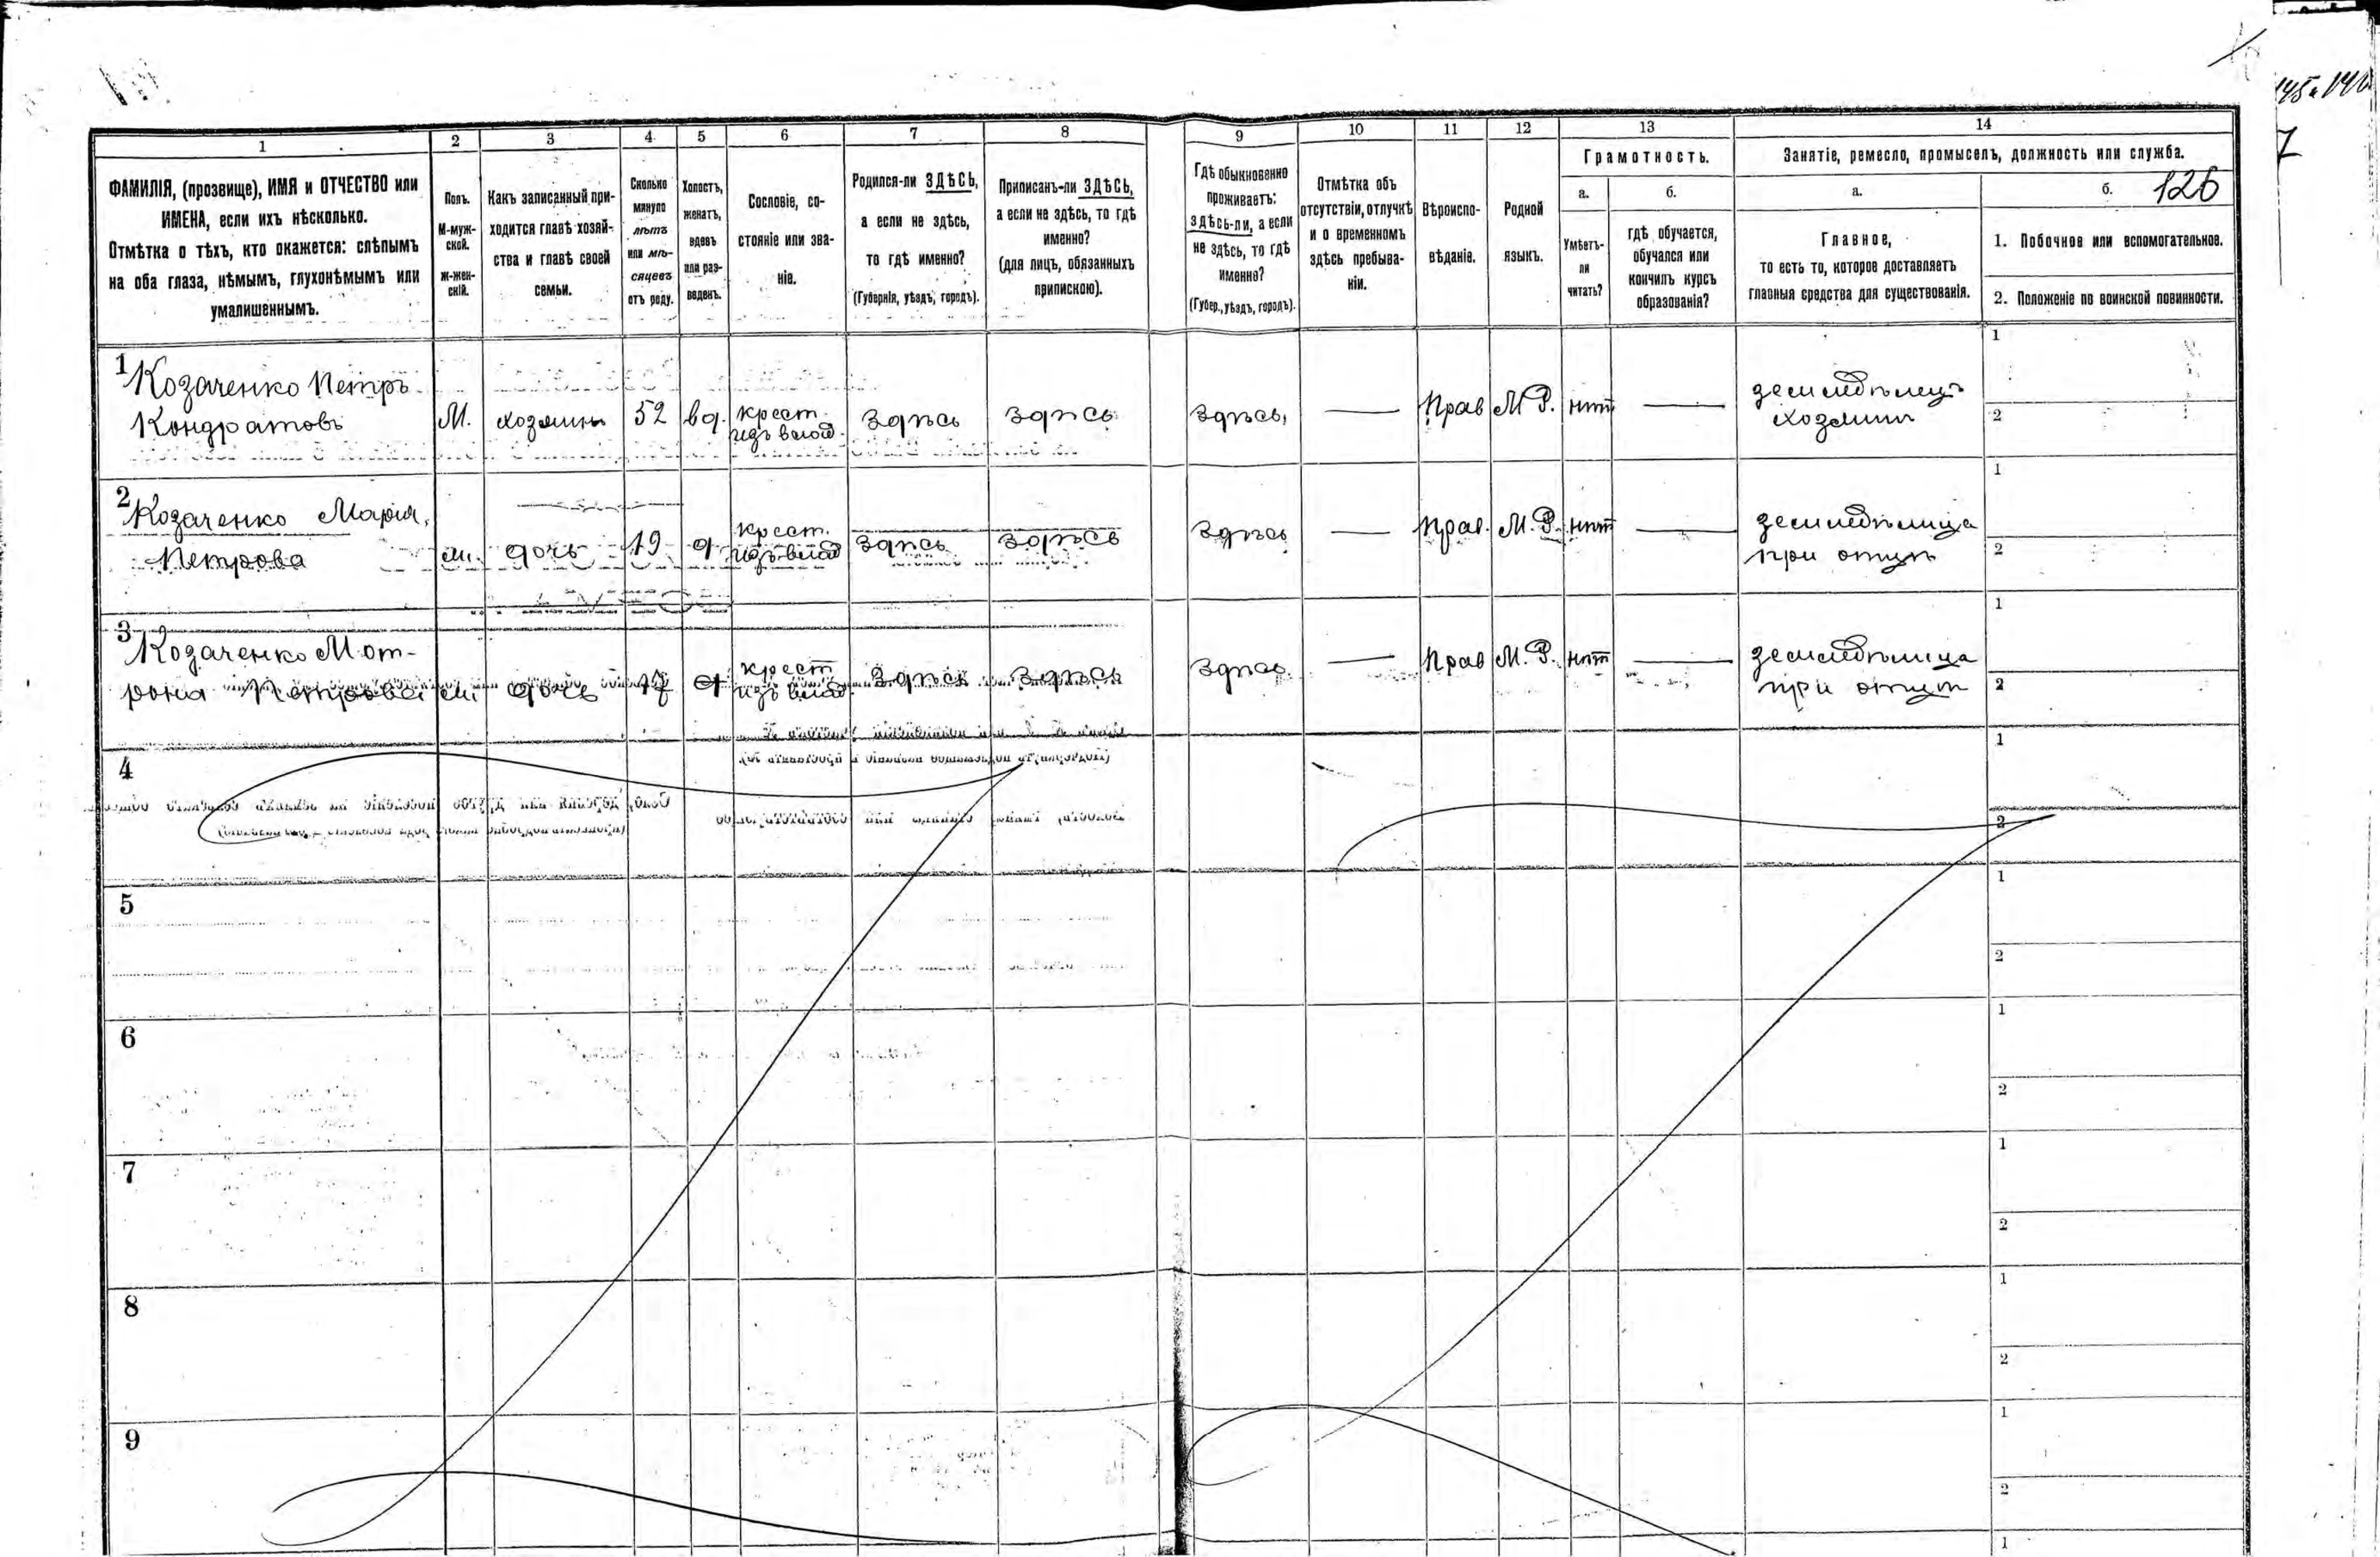 145 и 146
7
126
1
2
3
4
5
6
7
8
9
10
11
12
13
14
ФАМИЛІЯ, (прозвище), ИМЯ и ОТЧЕСТВО или
ИМЕНА, если ихъ нѣсколько.
Отмѣтка о тѣхъ, кто окажется: слѣпымъ
на оба глаза, нѣмымъ, глухонѣмымъ или
умалишеннымъ.
Полъ.
М-муж-
ской.
Ж-жен-
скій.
Какъ записанный при-
ходится главѣ хозяй-
ства и главѣ своей
семьи.
Сколько
минуло
лѣтъ
или мѣ-
сяцевъ
отъ роду.
Холостъ,
женатъ,
вдовъ
или раз-
веденъ.
Сословіе, со-
стояніе или зва-
ніе.
Родился-ли ЗДѢСЬ,
а если не здѣсь,
то гдѣ именно?
(Губернія, уѣздъ, городъ).
Приписанъ-ли ЗДѢСЬ,
а если не здѣсь, то гдѣ
именно?
(для лицъ, обязанныхъ
припискою).
Гдѣ обыкновенно
проживаетъ:
здѣсь-ли, а если
не здѣсь, то гдѣ
именно?
(Губер., уѣздъ, городъ).
Отмѣтка объ
отсутствіи, отлучкѣ
и о временномъ
здѣсь пребыва-
ніи.
Вѣроиспо-
вѣданіе.
Родной
языкъ.
Грамотность.
а.
Умѣетъ-
ли
читать?
б.
гдѣ обучается,
обучался или
кончилъ курсъ
образованія?
Занятіе, ремесло, промыселъ, должность или служба.
а.
Главное,
то есть то, которое доставляетъ
главныя средства для существованія.
б.
1. Побочное или вспомогательное.
2. Положеніе по воинской повинности.
1
Козаченко Петръ
Кондратовъ
М.
хозяинъ
52
вд.
крест.
изъ влад.
здѣсь
здѣсь
здѣсь
—
Прав
М Р.
нѣт
—
земледѣлецъ
хозяинъ
1
2
2
Козаченко Марія
Петрова
ж.
дочь
19
д
крест.
изъ влад
здѣсь
здѣсь
здѣсь
—
Прав.
М. Р.
нѣт
—
земледѣлица
при отцѣ
1
2
3
Козаченко Мот-
рона Петрова
ж.
дочь
17
д
крест
изъ влад
здѣсь
здѣсь
здѣсь
—
Прав
М. Р.
нѣт
—
земледѣлица
при отцѣ
1
2
4
1
2
5
1
2
6
1
2
7
1
2
8
1
2
9
1
2
1